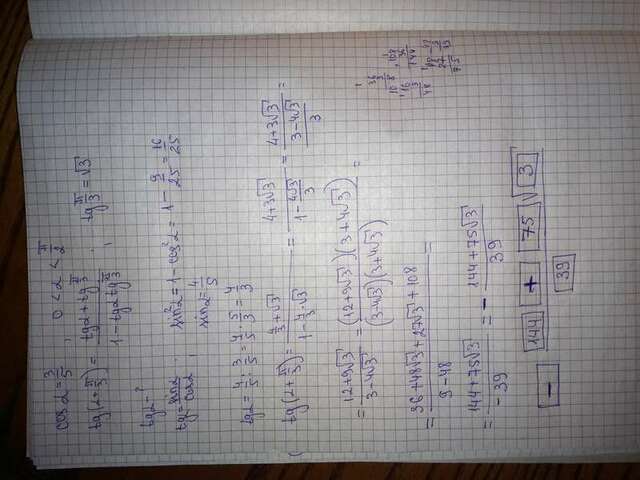 cos α = 3/5, 0 < α < π/2
tg(α + π/3) = (tg α + tg π/3)/(1 - tg α tg π/3), tg π/3 = √3
tg α - ?
tg α = sin α/cos α, sin²α = 1 - cos²α = 1 - 9/25 = 16/25
sin α = 4/5
tg α = 4/5 : 3/5 = 4/5 · 5/3 = 4/3
tg(α + π/3) = (4/3 + √3)/(1 - 4/3 · √3) = (4+3√3)/(1 - 4√3/3) = (4+3√3)/((3-4√3)/3) =
= (12+9√3)/(3-4√3) = (12+9√3)(3+4√3)/(3-4√3)(3+4√3) =
= (36+48√3+27√3+108)/(9-48) =
= (144+75√3)/-39 = - (144+75√3)/39
- 144 + 75 √3
39